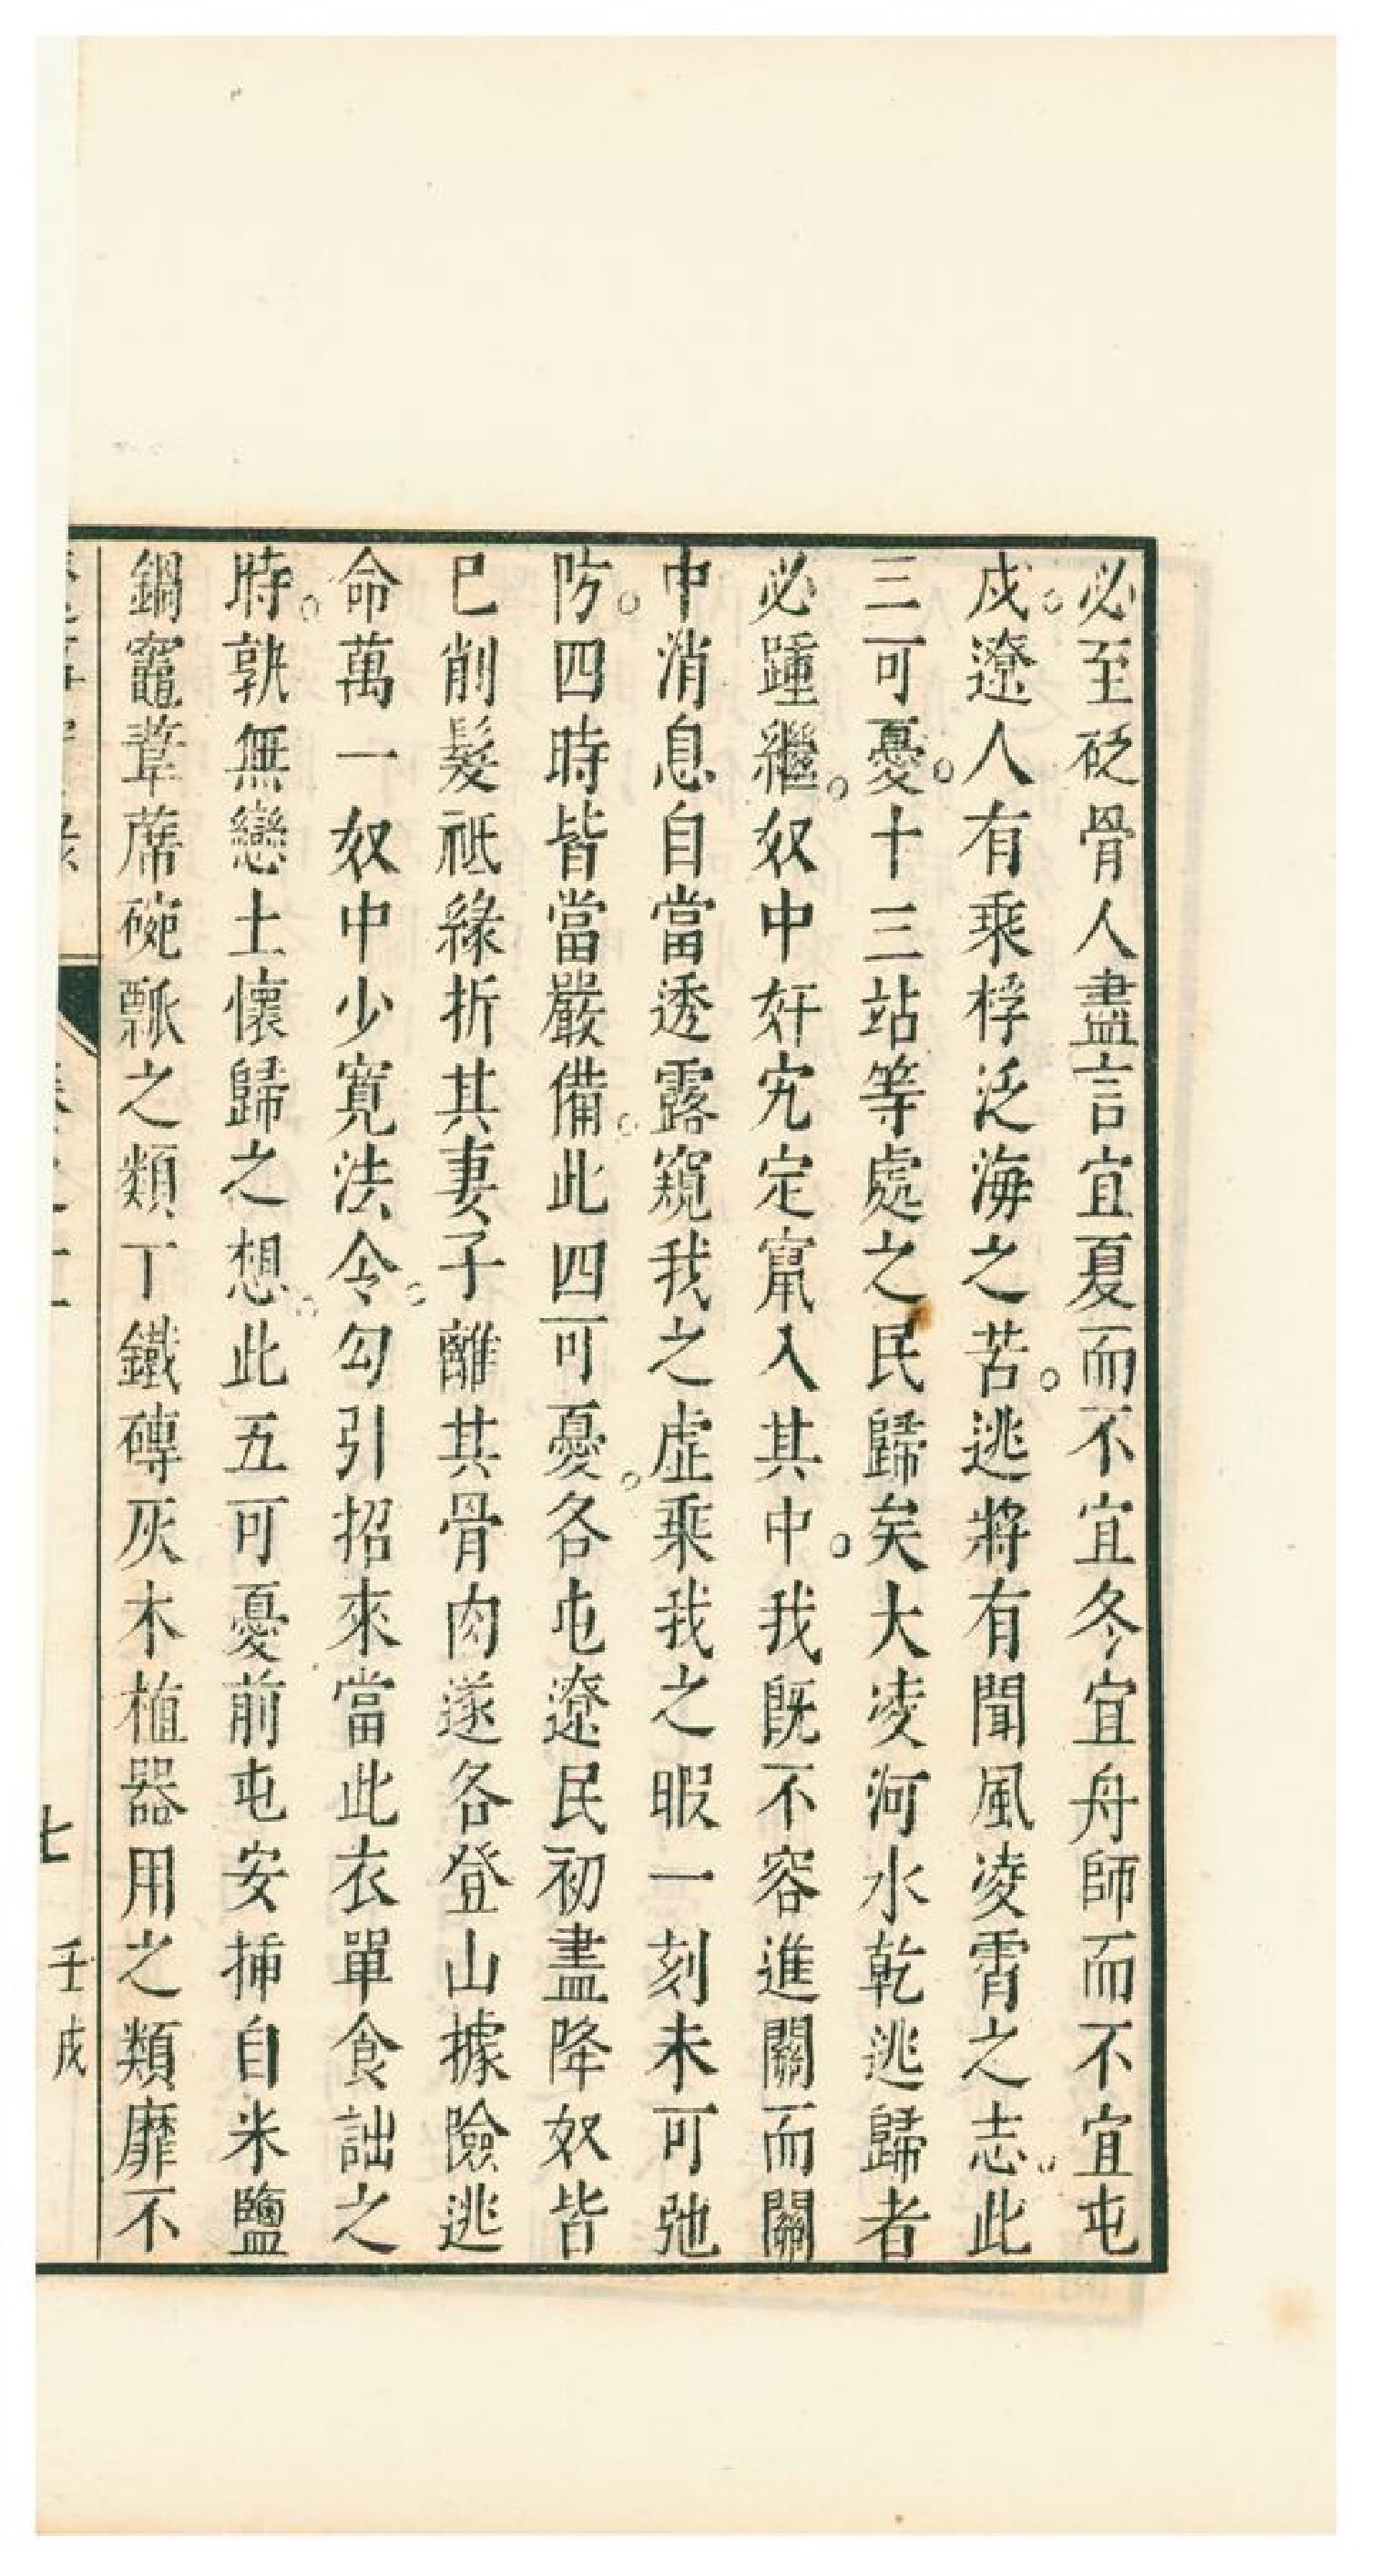 必至砭骨人盡言宜夏而不宜冬宜舟師而不宜屯
戍。遼人有乘桴泛海之苦。逃將有聞風凌霄之志。此
三可憂。十三站等處之民歸矣大凌河水乾逃歸者
必踵繼。奴中奸宄定竄入其中。我既不容進關而關
中消息自當透露窺我之虛乘我之暇一刻未可弛
防。四時皆當嚴備。此四可憂。各屯遼民初盡降奴皆
已削髮祗緣折其妻子離其骨肉遂各登山據險逃
命萬一奴中少寬法令。勾引招來當此衣單食詘之
時。孰無戀土懷歸之想。此五可憂前屯安插自米鹽
鍋竈葦蓆碗瓢之類丁鐵磚灰木植器用之類靡不
七 壬戌